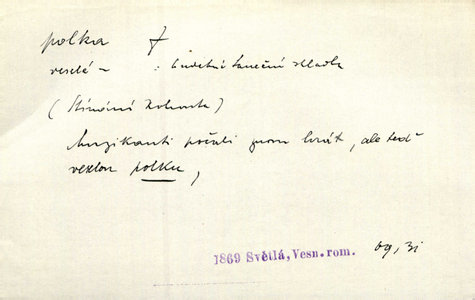 polka f
veselá – : hudebně taneční skladba
(Stínání kohouta)
Muzikanti počali znovu hrát, ale teď
veselou polku,
1869 Světlá, Vesn. rom. 09, 31